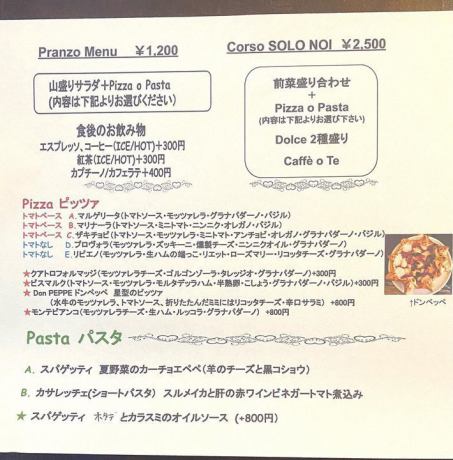 Pranzo Menu ￥1,200
山盛りサラダ＋Pizza o Pasta
(内容は下記よりお選びください)
食後のお飲み物
エスプレッソ、コーヒー(ICE/HOT)+300円
紅茶(ICE/HOT)+300円
カプチーノ/カフェラテ+400円
Corso SOLO NOI ￥2,500
前菜盛り合わせ
+
Pizza o Pasta
(内容は下記よりお選び下さい)
Dolce 2種盛り
Caffè o Te
Pizza ピッツァ
トマトベース A. マルゲリータ(トマトソース・モッツァレラ・グラナパダーノ・バジル)
トマトベース B. マリナーラ(トマトソース・ミニトマト・ニンニク・オレガノ・バジル)
トマトベース C. ザキチョビ(トマトソース・モッツァレラ・ミニトマト・アンチョビ・オレガノ・グラナパダーノ・バジル)
トマトなし D. プロヴォラ(モッツァレラ・ズッキーニ・燻製チーズ・ニンニクオイル・グラナパダーノ)
トマトなし E. リピエノ(モッツァレラ・生ハムの端っこ・リエット・ローズマリー・リコッタチーズ・グラナパダーノ)
★クアトロフォルマッジ(モッツァレラチーズ・ゴルゴンゾーラ・タレッジオ・グラナパダーノ)+300円
★ビスマルク(トマトソース・モッツァレラ・モルタデッラハム・半熟卵・こしょう・グラナパダーノ・バジル)+300円
★ Don PEPPE ドンペッペ 星型のピッツァ
(水牛のモッツァレラ、トマトソース、折りたたんだミミにはリコッタチーズ・辛口サラミ) +800円
★モンテビアンコ(モッツァレラチーズ・生ハム・ルッコラ・グラナパダーノ) +800円
↑ドンペッペ
Pasta パスタ
A. スパゲッティ 夏野菜のカーチョエペペ(羊のチーズと黒コショウ)
B. カサレッチェ(ショートパスタ) スルメイカと肝の赤ワインビネガートマト煮込み
★ スパゲッティ ホタテとカラスミのオイルソース (+800円)